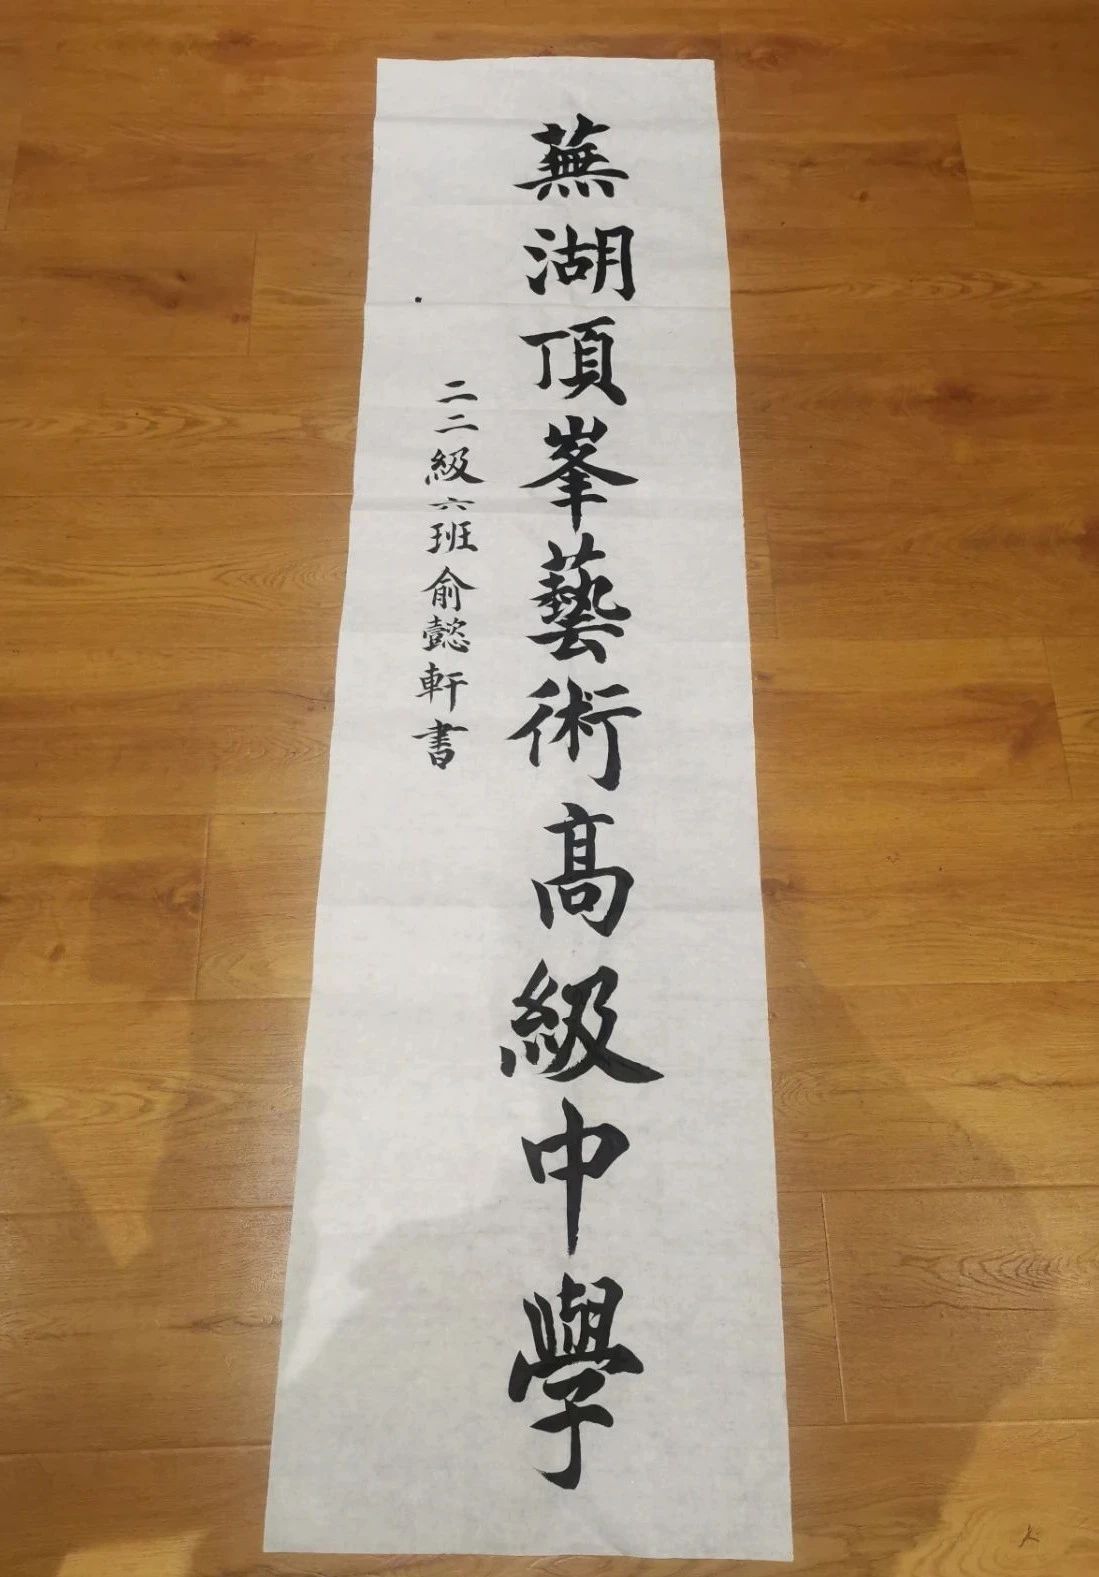 蕪湖頂峯藝術高級中學
二二級六班俞懿軒書